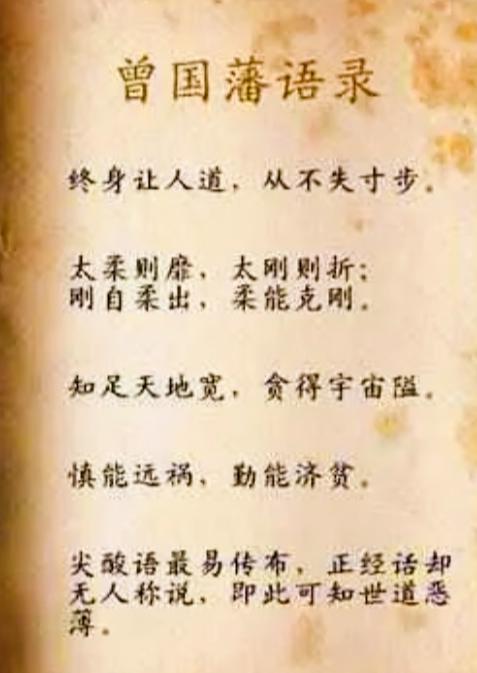 曾国藩语录
终身让人道，从不失寸步。
太柔则靡，太刚则折；
刚自柔出，柔能克刚。
知足天地宽，贪得宇宙隘。
慎能远祸，勤能济贫。
尖酸语最易传布，正经话却
无人称说，即此可知世道恶
薄。